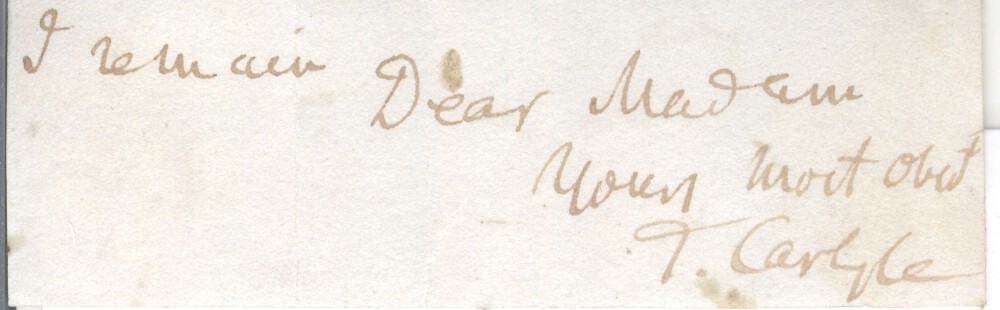 I remain
Dear Madam
Yours most obdt
T. Carlyle